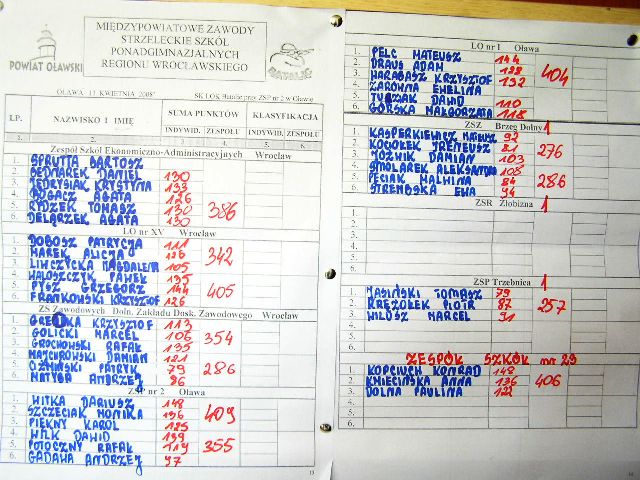 MIĘDZYPOWIATOWE ZAWODY
STRZELECKIE SZKÓŁ
PONADGIMNAZJALNYCH
REGIONU WROCŁAWSKIEGO
POWIAT OŁAWSKI
OŁAWA 11 KWIETNIA 2008
SK LOK przy ZSP nr 2 w Oławie
LP. NAZWISKO I IMIĘ SUMA PUNKTÓW KLASYFIKACJA
INDYWID. ZESPÓŁ. INDYWID. ZESPÓŁ.
1. 2. 3. 4. 5. 6.
Zespół Szkół Ekonomiczno-Administracyjnych Wrocław
1. SPRUTTA BARTOSZ
2. BEDNAREK DANIEL 130
3. JĘDRYSIAK KRYSTYNA 133
4. BOGACZ AGATA 126
5. RYDZEK TOMASZ 130 386
6. DELĄŻEK AGATA 130
LO nr XV Wrocław
1. DOBOSZ PATRYCJA 111
2. MAREK ALICJA 126 342
3. LIWCZYCKA MAGDALENA 105
4. WALOSZCZYK PAWEŁ 135
5. PYSZ GRZEGORZ 144 405
6. FRANKOWSKI KRZYSZTOF 126
ZS Zawodowych Doln. Zakładu Dosk. Zawodowego Wrocław
1. KRZYSZTOF 113
2. GOLICKI MARCEL 106 354
3. GROCHOWSKI RAFAŁ 135
4. MAJCHROWSKI DAMIAN 121
5. OŹMIŃSKI PATRYK 79 286
6. MATYBA ANDRZEJ 86
ZSP nr 2 OŁAWA
1. WITKA DARIUSZ 148
2. SZCZECIAK MONIKA 136 409
3. PIĘKNY KAROL 125
4. WILK DAWID 139
5. POTOCZNY RAFAŁ 119 355
6. GADAWA ANDRZEJ 97
LO nr I Oława
1. PELC MATEUSZ 144
2. DRAUS ADAM 128 404
3. HARABASZ KRZYSZTOF 132
4. ŻARÓWNA EWELINA
5. TURZAK DAWID 110
6. GÓRSKA MAŁGORZATA 118
ZSZ Brzeg Dolny 1
1. KASPERKIEWICZ MATEUSZ 92
2. KOCIOŁEK IRENEUSZ 81 276
3. JÓŹWIK DAMIAN 103
4. SMOLAREK ALEKSANDRA 108
5. PECIAK MALWINA 84 286
6. STREMBSKA EWA 94
ZSR Żłobizna 1
1.
2.
3.
4.
5.
6.
ZSP Trzebnica 1
1. JASIŃSKI TOMASZ 79
2. KRĘŻOŁEK PIOTR 87 257
3. WILUSZ MARCEL 91
4.
5.
6.
ZESPÓŁ SZKÓŁ nr 29
1. KOPCIUCH KONRAD 148
2. KMIECIŃSKA ANNA 136 406
3. DOLNA PAULINA 122
4.
5.
6.